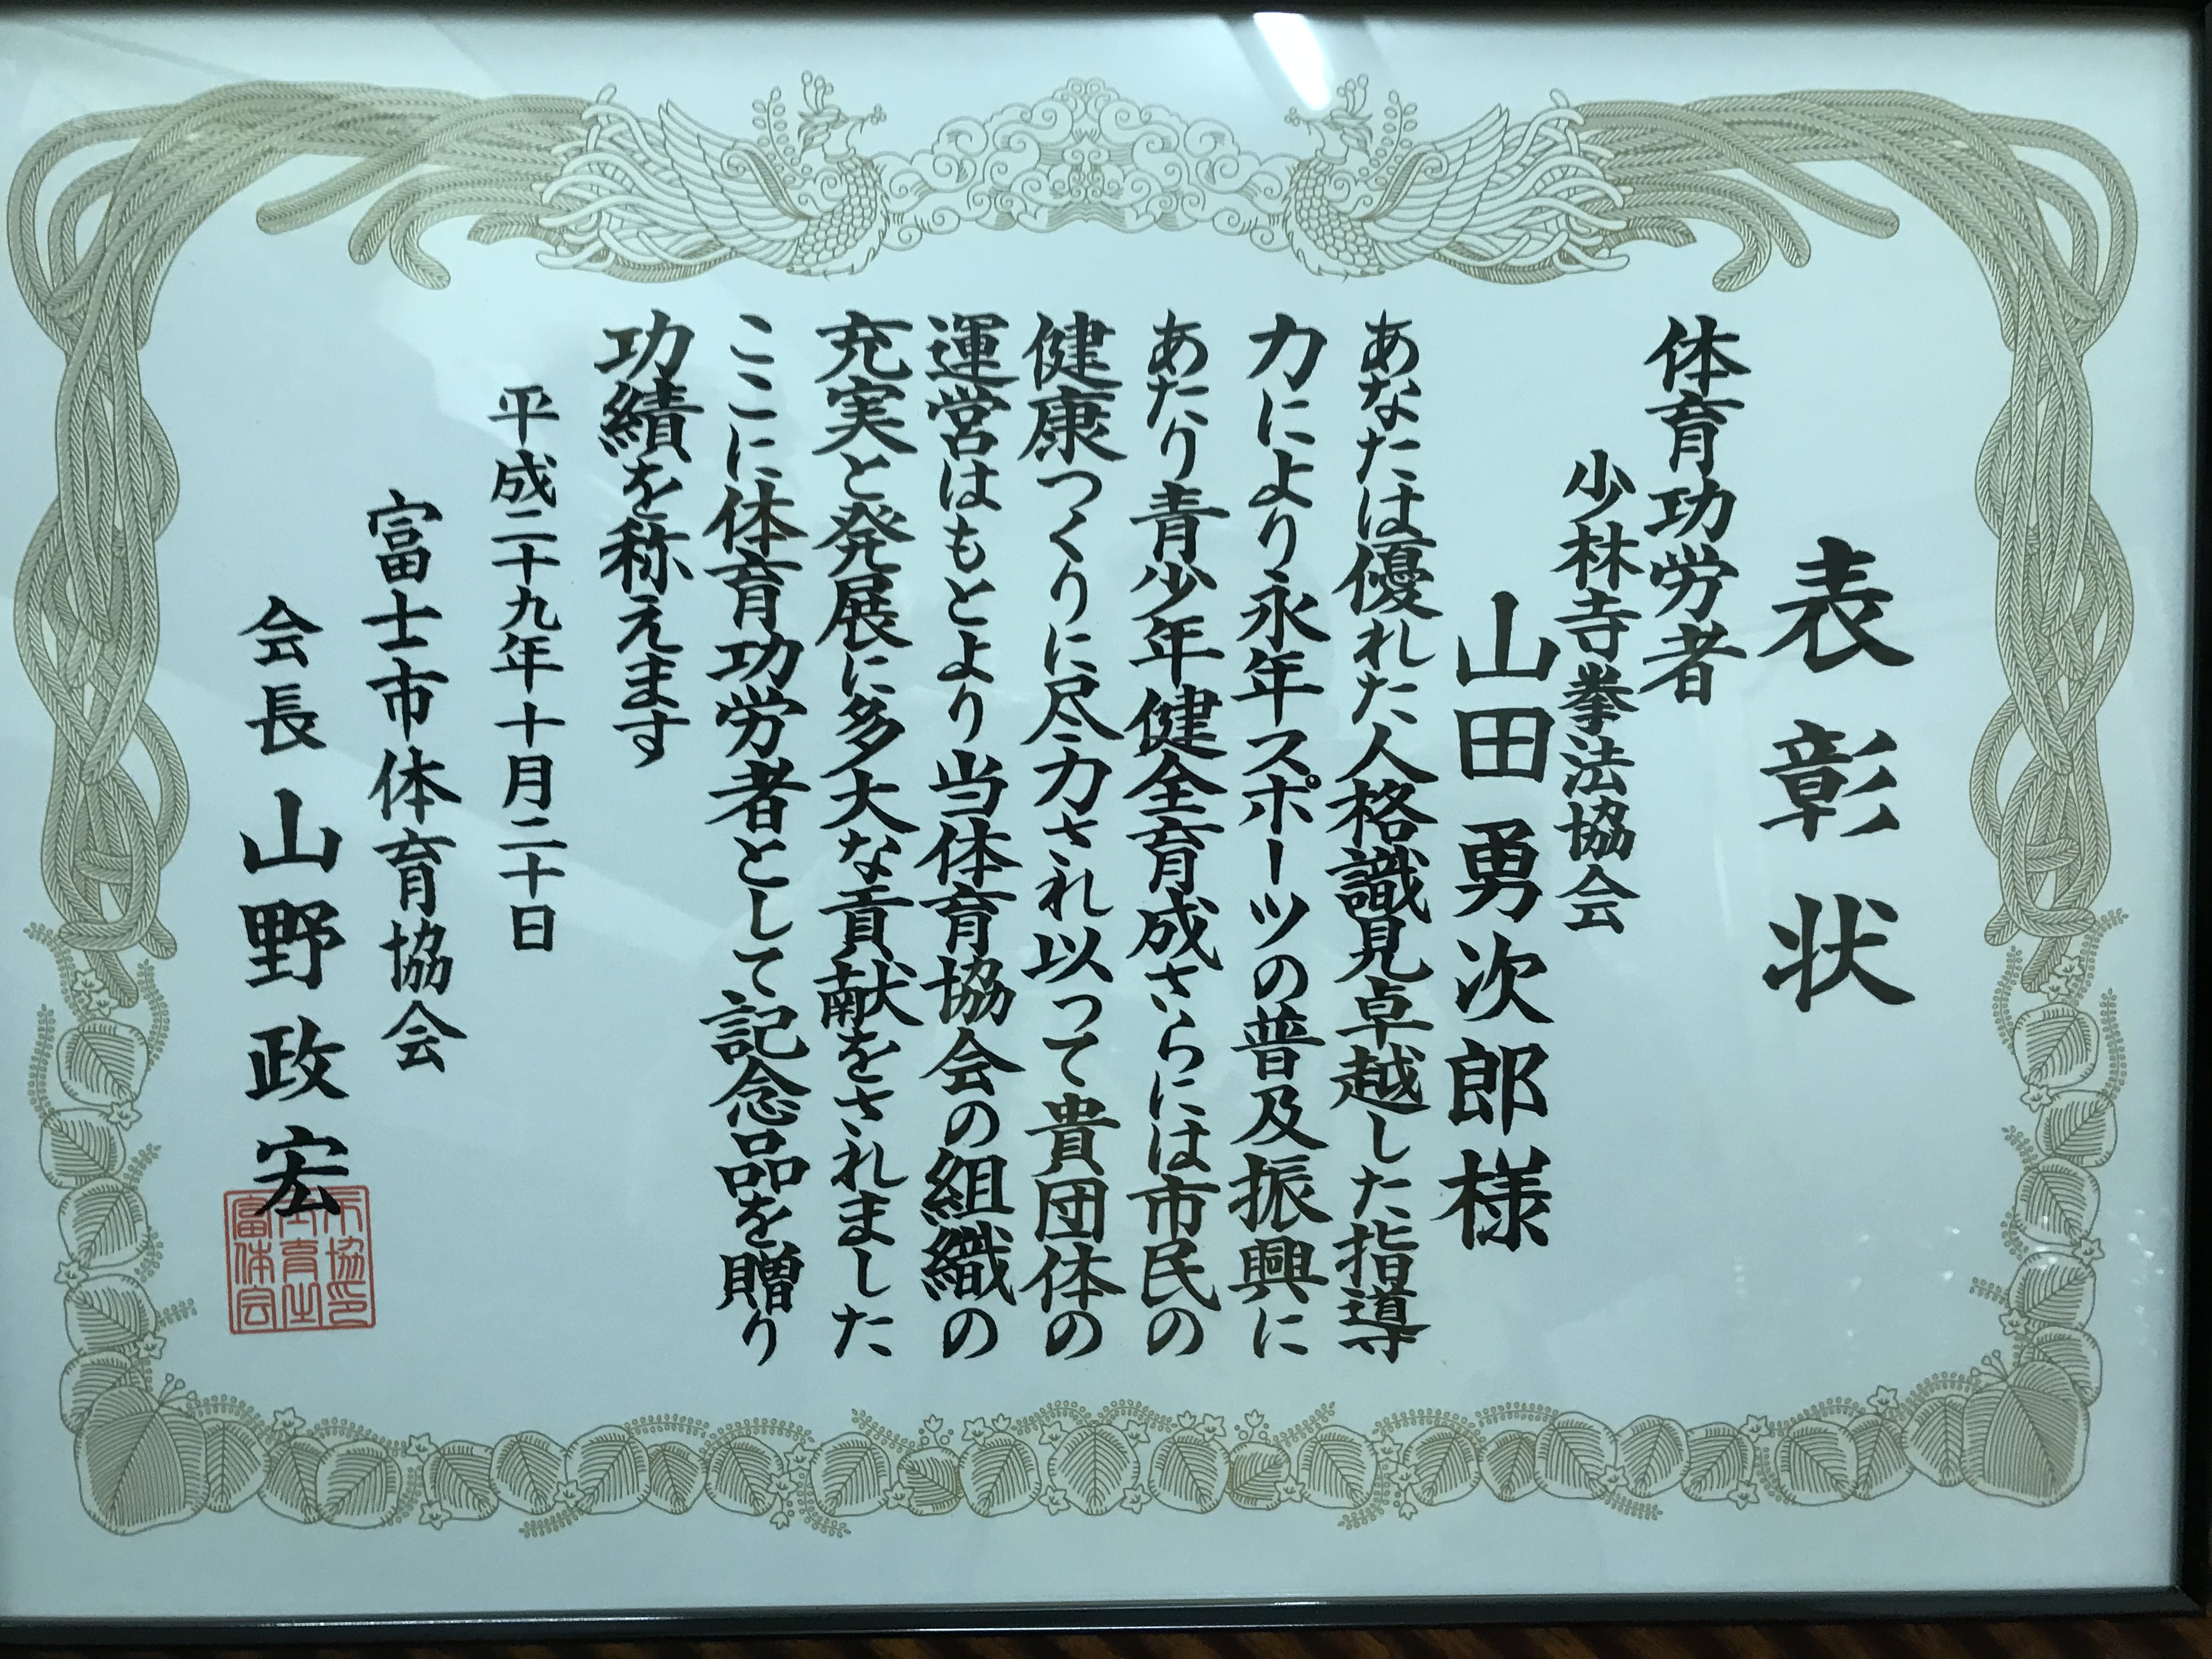 表彰状
体育功労者
少林寺拳法協会
山田勇次郎様
あなたは優れた人格識見卓越した指導
力により永年スポーツの普及振興に
あたり青少年健全育成さらには市民の
健康つくりに尽力され以って貴団体の
運営はもとより当体育協会の組織の
充実と発展に多大な貢献をされました
ここに体育功労者として記念品を贈り
功績を称えます
平成二十九年十月二十日
富士市体育協会
会長 山野政宏